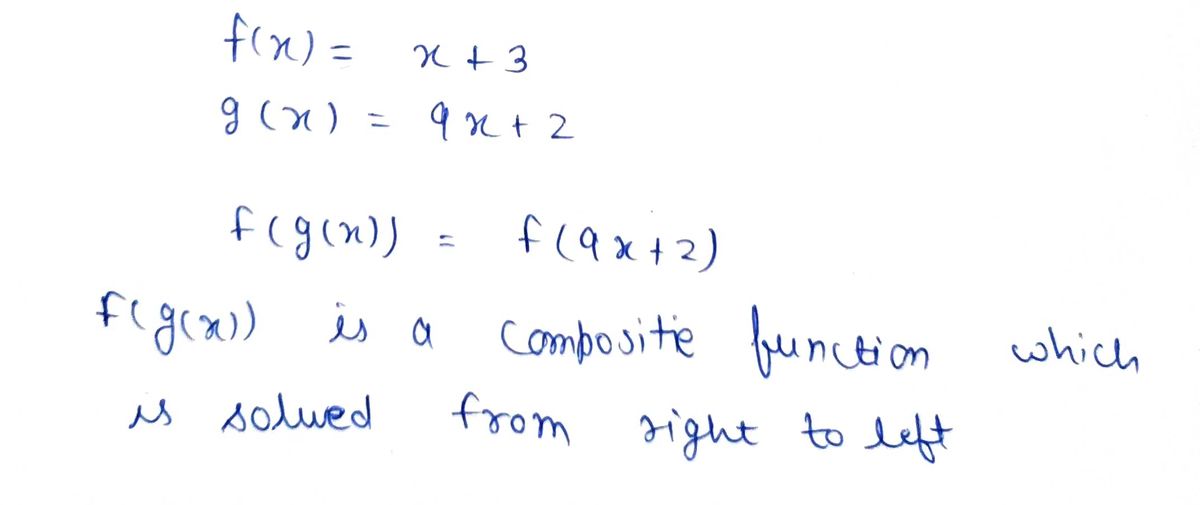 f(x) = x + 3
g(x) = 9x + 2
f(g(x)) = f(9x+2)
f(g(x)) is a composite function which
is solved from right to left